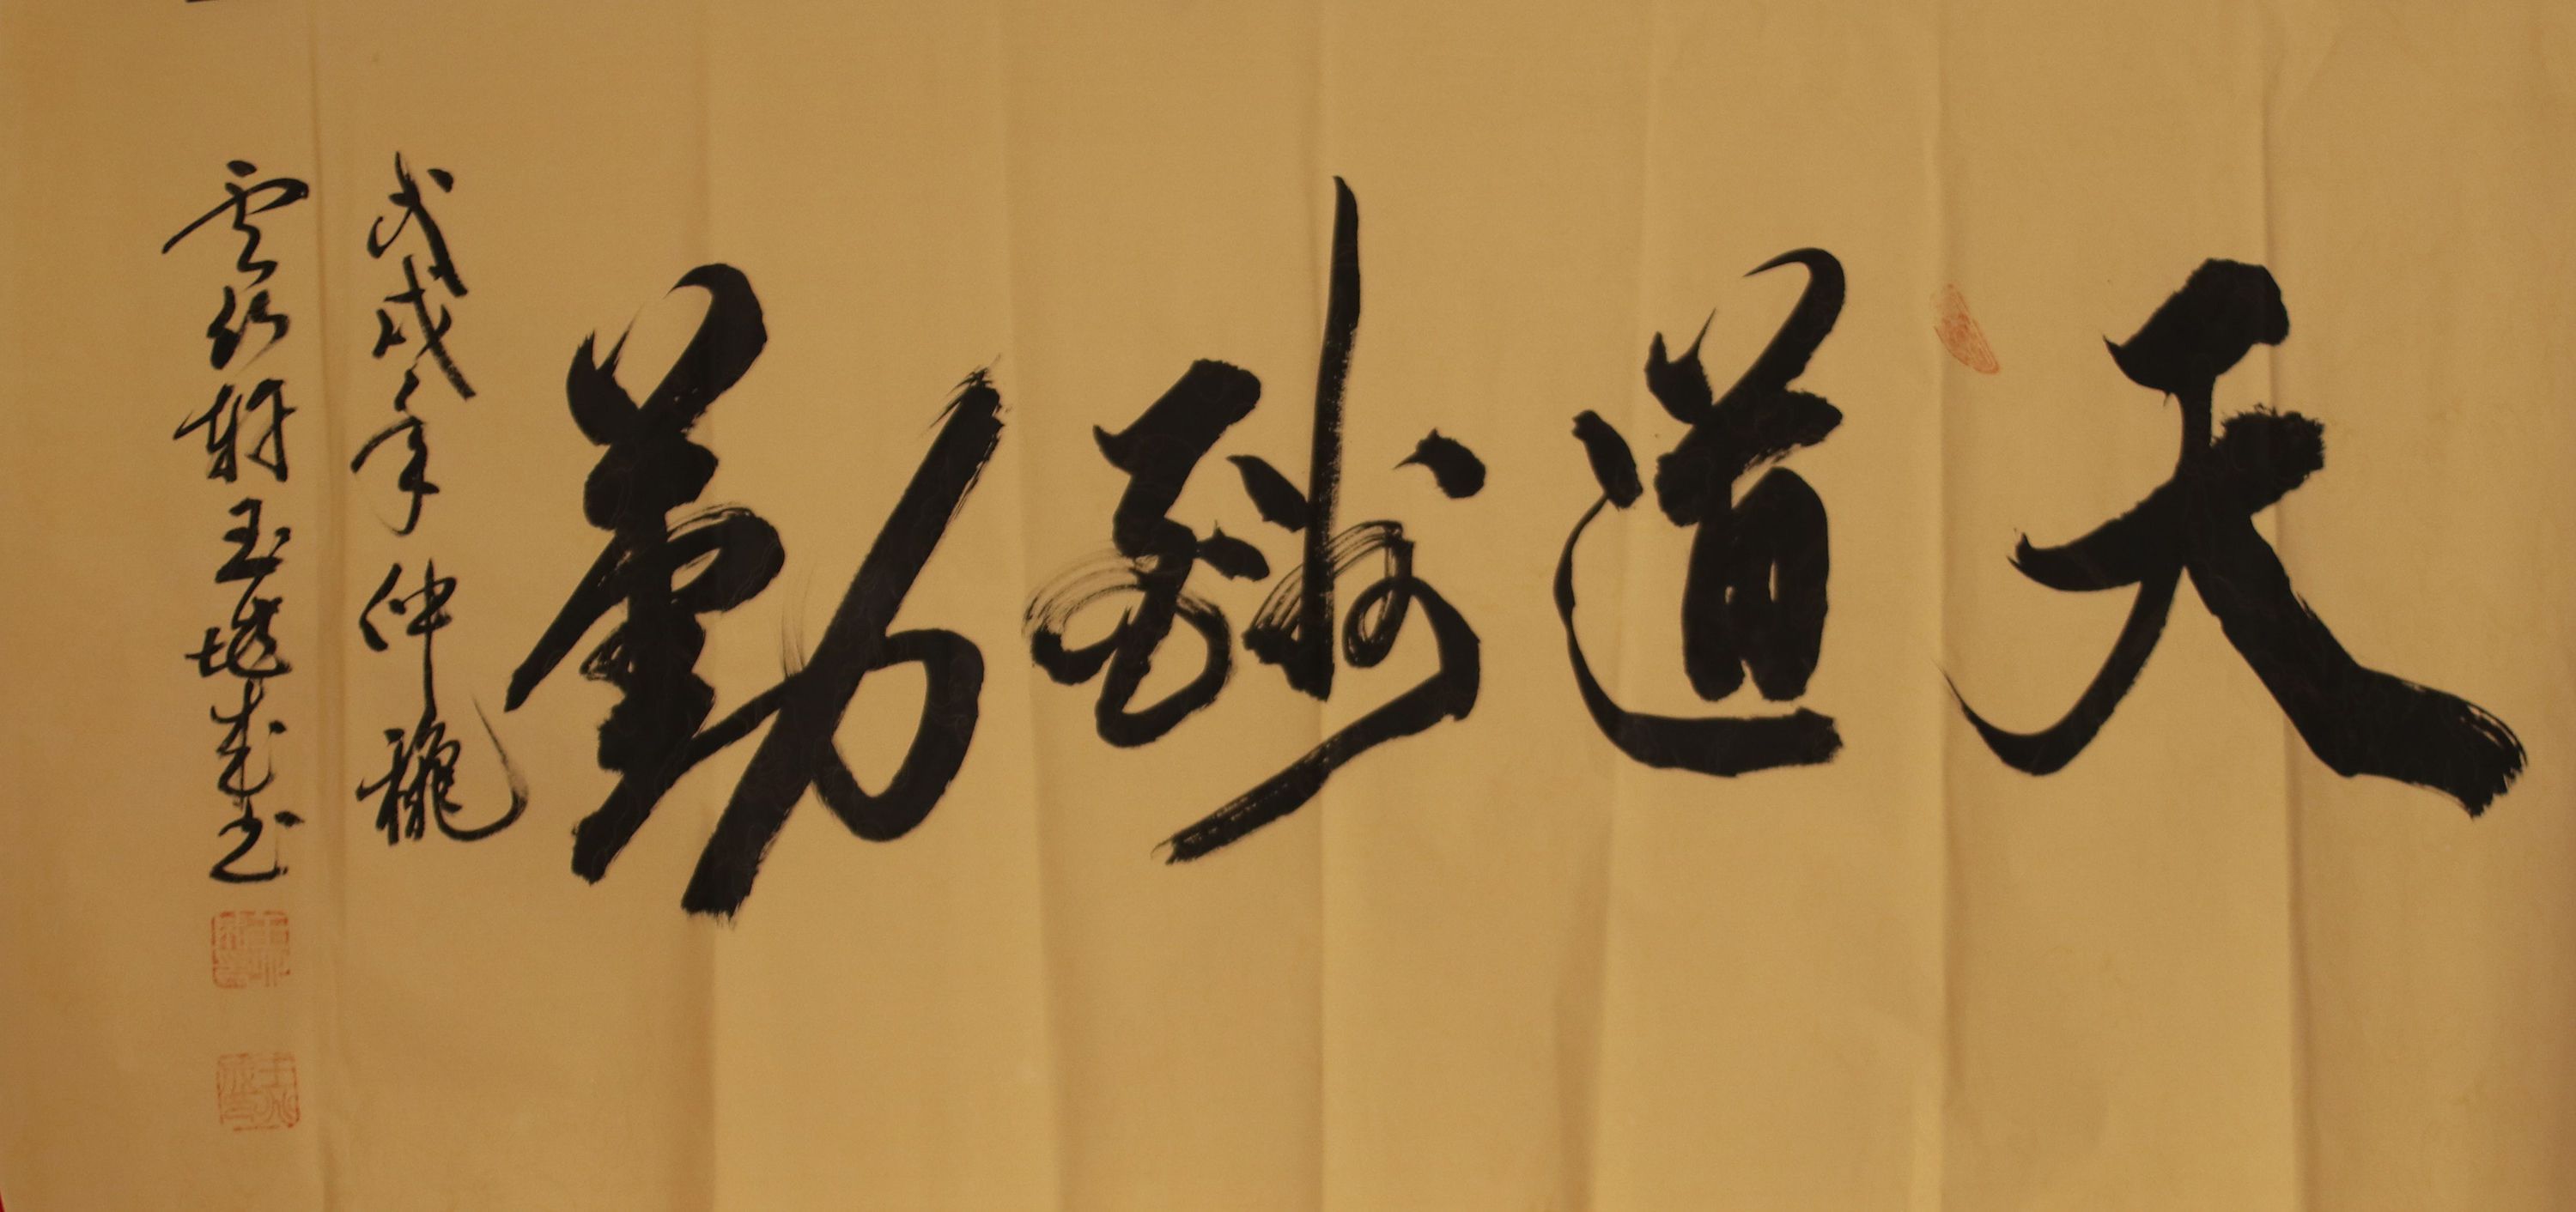 天道酬勤
戊戌年仲秋
雲行軒玉城書